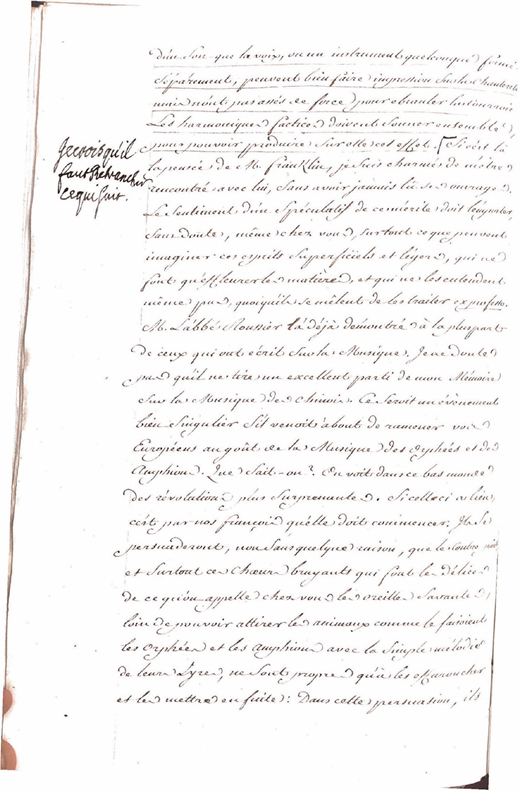 d'un son que la voix, ou un instrument quelconque forme
séparément, peuvent bien faire impression sur la chanterelle
mais n'ont pas assés de force pour ébranler
Les harmoniques factices doivent sonner ensemble
pour pouvoir produire sur elle cet effet. [Si c'est là
Je crois qu'il
faut retrancher
ce qui suit.
la pensée de M. franklin, je suis charmé de m'être
rencontré avec lui, sans avoir jamais lû ses ouvrages.
Le Sentiment d'un Spéculatif de ce mérite doit l'emporter,
sans doute, même chez vous, surtout ce que peuvent
imaginer ces esprits superficiels et légers, qui ne
font qu'effleurer les matières, et qui ne les entendent
même pas, quoiqu'ils se mêlent de les traiter ex professo.
M. L'abbé Roussier l'a déjà démontré à la pluspart
de ceux qui ont écrit sur la Musique. Je ne doute
pas qu'il ne tire un excellent parti de mon Mémoire
sur la Musique des Chinois. Ce seroit un évènement
bien singulier s'il venoit à bout de ramener vos
Européens au goût de la Musique des Orphées et des
Amphions. Que sait-on? On voit dans ce bas monde
des révolutions plus surprenantes. Si celle ci a lieu,
c'est par nos françois qu'elle doit commencer: Ils se
persuaderont, non sans quelque raison, que le
et surtout ces Chœurs bruyants qui font les délices
de ce qu'on appelle chez vous les oreilles Savantes,
loin de pouvoir attirer les animaux comme le faisoient
les Orphées et les Amphions avec la simple mélodie
de leur Lyre, ne sont propres qu'à les effaroucher
et les mettre en fuite: Dans cette persuasion, ils